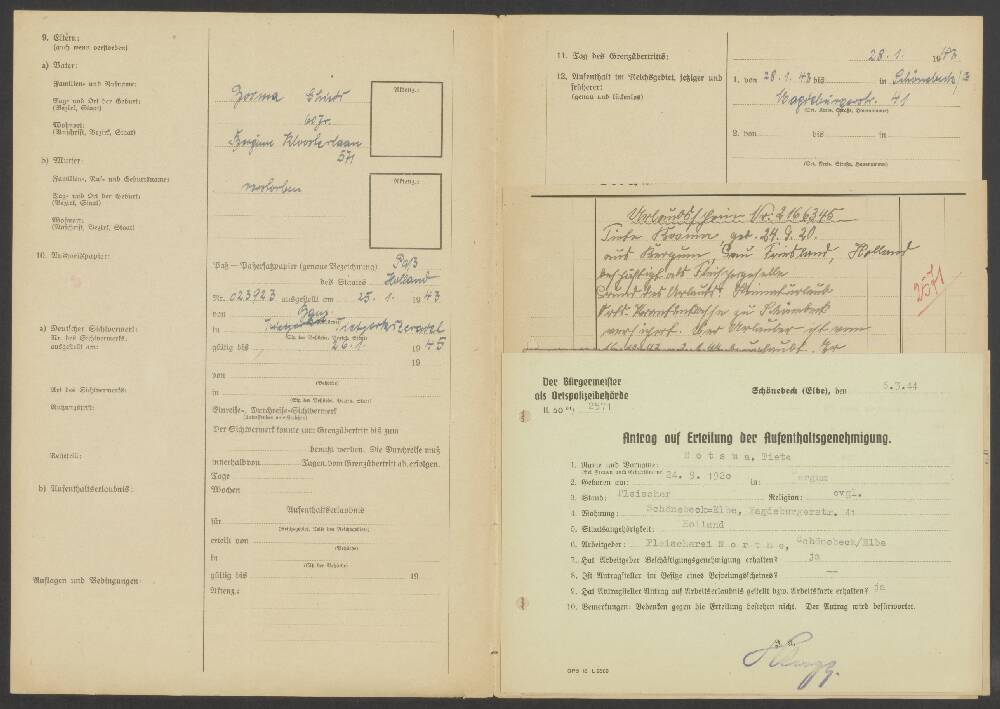 9. Eltern:
(auch wenn verstorben)
a) Vater:
Familien- und Rufname:
Aktenz.:
Tage und Ort der Geburt:
(Bezirk, Staat)
60 Jr.
Wohnort:
(Anschrift, Bezirk, Staat)
Bergum Kloosterlaan
571
b) Mutter:
Familien-, Ruf- und Geburtsname:
Aktenz.:
Tag- und Ort der Geburt:
(Bezirk, Staat)
verstorben
Wohnort:
(Anschrift, Bezirk, Staat)
10. Ausweispapier:
Paß — Paßersatzpapier (genaue Bezeichnung) Paß
des Staates Holland
Nr. 023923 ausgestellt am 25. 1. 1943
von
in
(Sitz der Behörde, Bezirk, Staat)
gültig bis 26.1. 1945
a) Deutscher Sichtvermerk:
Nr. des Sichtvermerks:
ausgestellt am:
19
von
(Behörde)
in
(Sitz der Behörde, Bezirk, Staat)
Art des Sichtvermerks:
Einreise-, Durchreise-Sichtvermerk
Nutzungsfrist:
Der Sichtvermerk konnte zum Grenzübertritt bis zum
benutzt werden. Die Durchreise muß
innerhalb von Tagen vom Grenzübertritt ab, erfolgen.
Reiseziel:
Tage
Wochen
b) Aufenthaltserlaubnis:
Aufenthaltserlaubnis
für
(Reichsgebiet, Teile des Reichsgebiets)
erteilt von
(Behörde)
in
(Sitz der Behörde)
gültig bis 19
Auflagen und Bedingungen:
Aktenz.:
11. Tag des Grenzübertritts: 28. 1. 1943
12. Aufenthalt im Reichsgebiet, jetziger und
früherer:
(genau und lückenlos)
1. von 28. 1. 43 bis in Schönebeck/E
Magdeburgerstr. 41
(Ort, Kreis, Straße, Hausnummer)
2. von bis in
(Ort, Kreis, Straße, Hausnummer)
Urlaubsschein Nr. 2166345
geb. 24. 9. 20.
aus Bergum, Gau Friesland, Holland
beschäftigt als Fleischergeselle
Grund des Urlaubs: Heimaturlaub
Orts-Krankenkasse zu Schönebeck
versichert. Der Urlauber ist vom
2571
Der Bürgermeister
als Ortspolizeibehörde
II. 50 2571
Schönebeck (Elbe), den 6.3.44
Antrag auf Erteilung der Aufenthaltsgenehmigung.
1. Name und Vorname: B o t s m a, Tiete
(Bei Frauen auch Geburtsname)
2. Geboren am: 24. 9. 1920 in: Bergum
3. Stand: Fleischer Religion: evgl.
4. Wohnung: Schönebeck-Elbe, Magdeburgerstr. 41
5. Staatsangehörigkeit: Holland
6. Arbeitgeber: Fleischerei N o r t h e, Schönebeck/Elbe
7. Hat Arbeitgeber Beschäftigungsgenehmigung erhalten? ja
8. Ist Antragsteller im Besitze eines Befreiungsscheines? —
9. Hat Antragsteller Antrag auf Arbeitserlaubnis gestellt bzw. Arbeitskarte erhalten? ja
10. Bemerkungen: Bedenken gegen die Erteilung bestehen nicht. Der Antrag wird befürwortet.